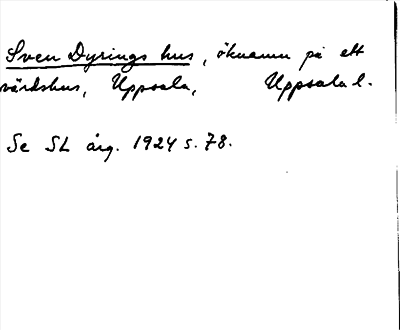 Sven Dyrings hus, öknamn på ett
värdshus, Uppsala, Uppsala l.
Se SL årg. 1924 s. 78.